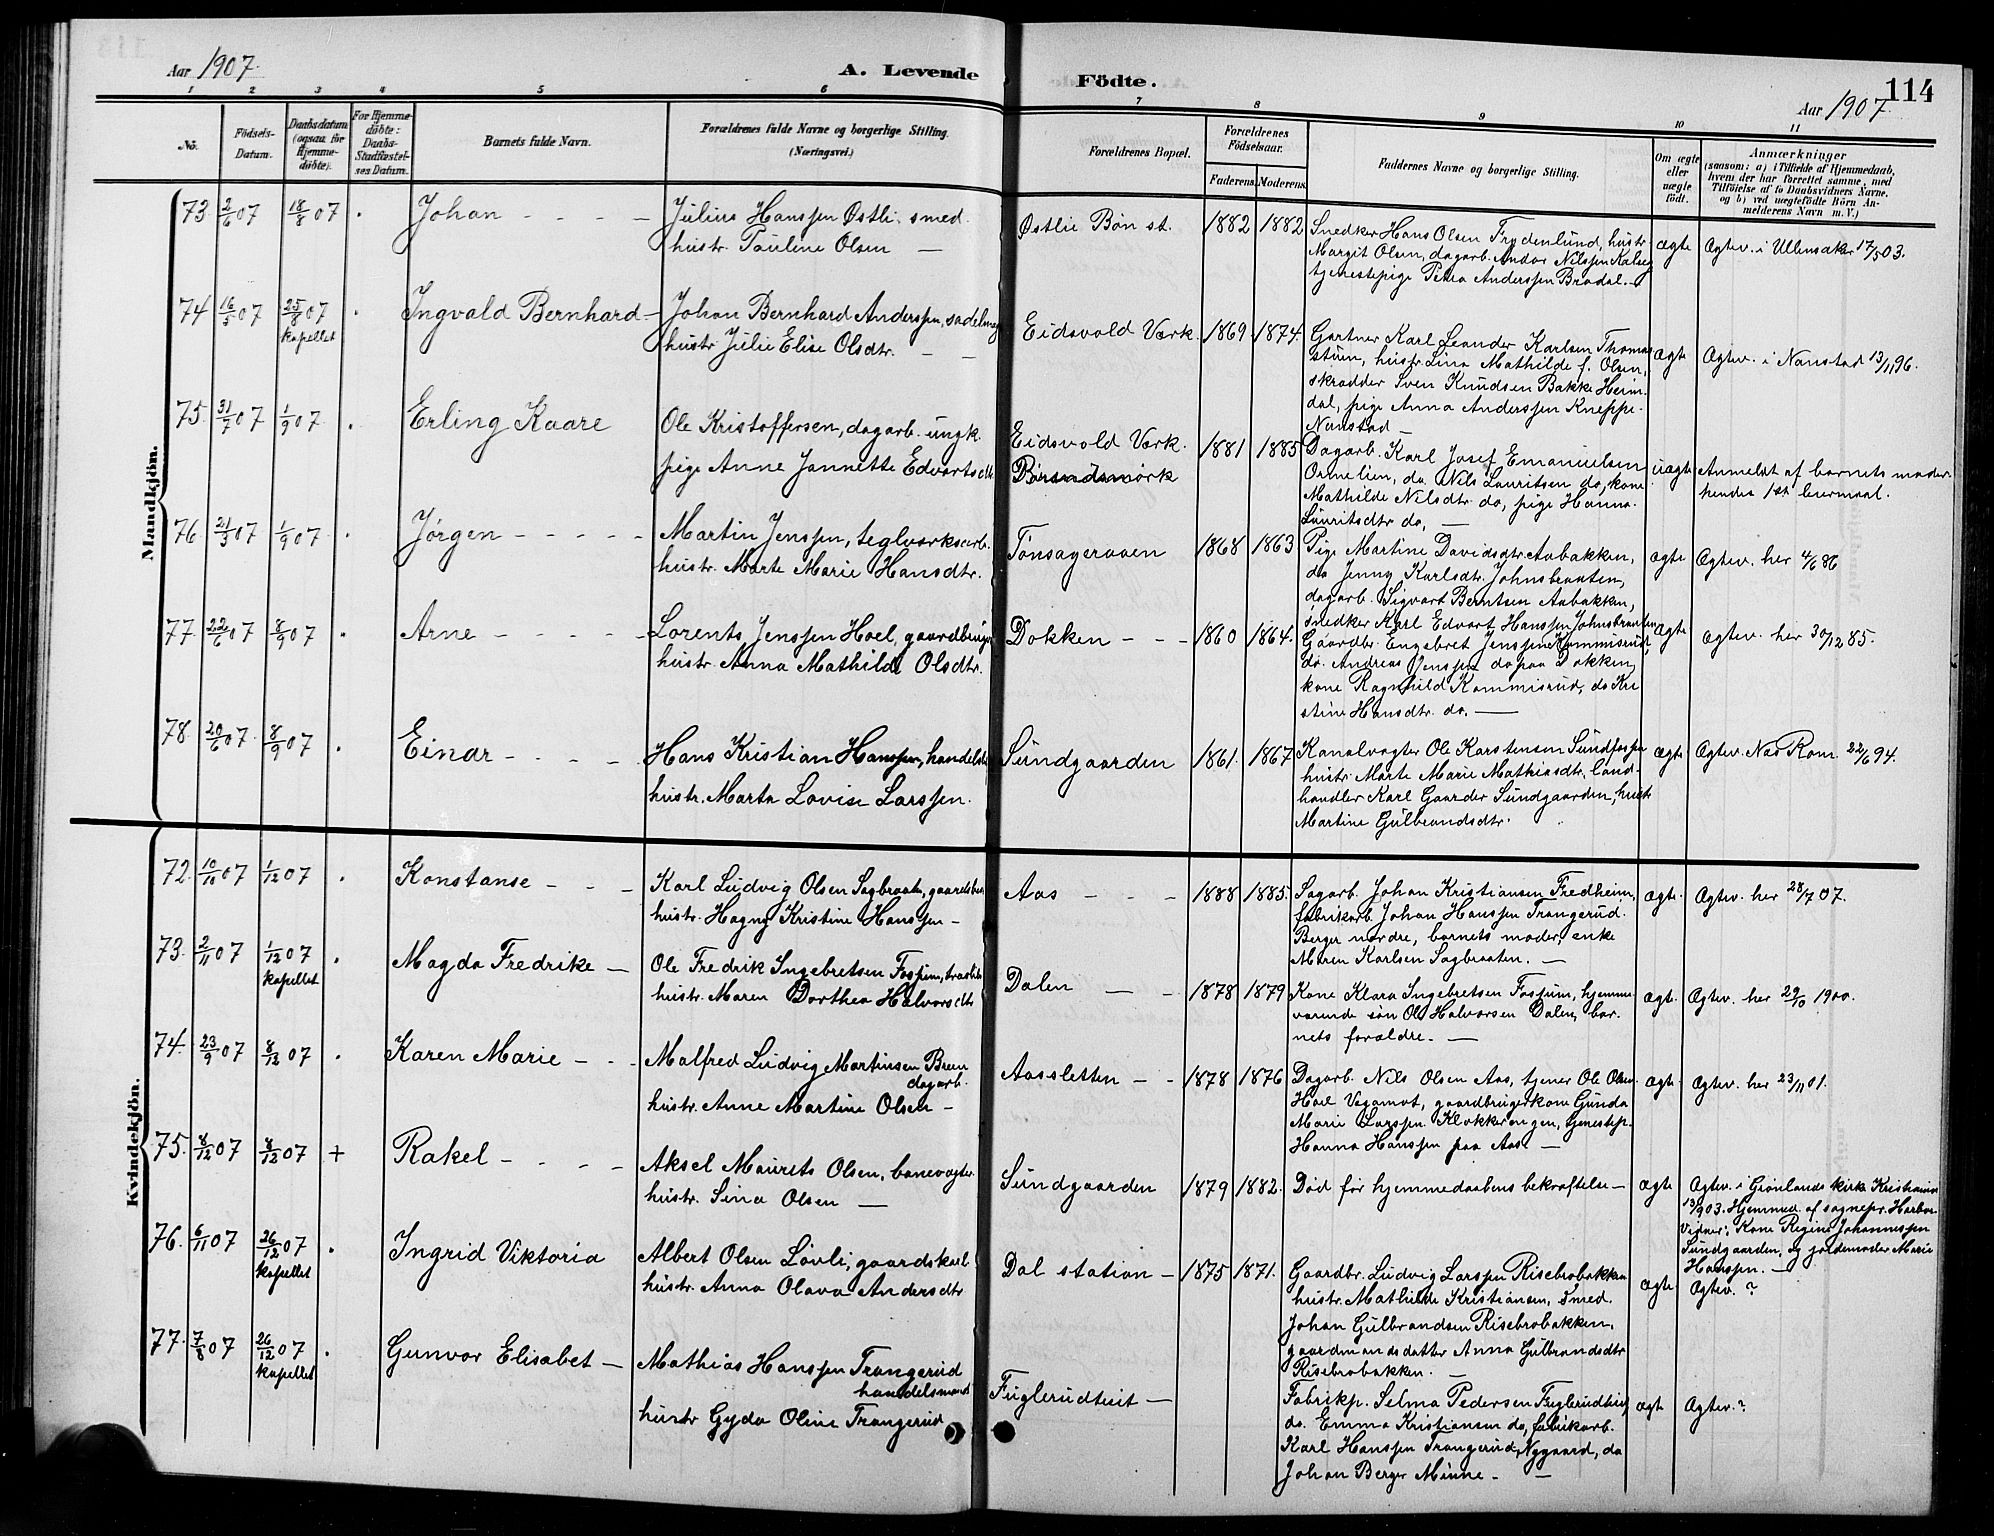 Aar 1907. A. Levende Födte. 114
Aar 1907
1 2 3 4 5 6 7 8 9 10 11
No. Födsels-Datum. Daabsdatum (ogsaa for Hjemmedöbte). For Hjemmedöbte: Daabs-Stadfæstelses Datum. Barnets fulde Navn. Forældrenes fulde Navne og borgerlige Stilling. (Næringsvei.) Forældrenes Bopæl. Forældrenes Födselsaar. Faderens. Moderens. Faddernes Navne og borgerlige Stilling. Om ægte eller uægte födt. Anmærkninger (saasom: a) i Tilfælde af Hjemmedaab, hvem der har forrettet samme, med Tilföielse af to Daabsvidners Navne, og b) ved uægtefödte Börn Anmelderens Navn m. V.)
Mandkjön.
73 2/6 07 18/8 07 Johan
Julius Hanssen Østli, smed.
hustr. Pauline Olsen
Østlie Bøn st. 1882 1882
Snedker Hans Olsen Frydenlund, hustr.
Margit Olsen, dagarb. Andor Nilssen
tjenestepige Petra Anderssen Bradal.
ægte Ægtev. i Ullensaker 17/5 03.
74 16/5 07 25/8 07 kapellet Ingvald Bernhard
Johan Bernhard Anderssen, sadelmag
hustr. Julie Elise Olsdtr.
Eidsvold Værk. 1869 1874.
Gartner Karl Leander Karlsen Thomas
stuen, hustr. Lina Mathilde f. Olsen,
skrædder Sven Knudsen Bakke Heim
dal, pige Anna Anderssen Kneppe
Nanstad
ægte Ægtev. i Nanstad 13/11 96.
75 31/7 07 1/9 07 Erling Kaare
Ole Kristoffersen, dagarb. ungk.
pige Anne Jannette Edvartsdtr.
Eidsvold Værk.
1881 1885
Dagarb. Karl Josef Emanuelsen
Ornelien, do Nils Lauritsen do, kone
Mathilde Nilsdtr. do, pige Hanna
Lauritsdtr do,
uægte Anmeldt af barnets moder
hendes 1ste leiermaal.
76 21/3 07 1/9 07 Jørgen
Martin Jenssen, teglværksarb.
hustr. Marte Marie Hansdtr.
Tønsageraaen 1868 1863
Pige Martine Davidsdtr. Aabakken,
do Jenny Karlsdtr. Johnsbraaten,
dagarb. Sigvart Berntsen Aabakken,
snedker Karl Edvart Hanssen Johnsbraaten
ægte Ægtev. her 4/6 86
77 22/6 07 8/9 07 Arne
Lorents Jenssen Hoel, gaardbruger
hustr. Anna Mathilde Olsdtr.
Dokken 1860 1864.
Gaardbr. Engebret Jenssen Kommisrud,
do. Andreas Jenssen do paa Dokken,
kone Ragnhild Kommisrud, do Kri
stine Hansdtr. do.
ægte Ægtev. her 30/12 85.
78 20/6 07 8/9 07 Einar
Hans Kristian Hanssen, handelsb
hustr. Marta Lovise Larssen.
Sundgaarden 1861. 1867
Kanalvogter Ole Karstensen Sundfossen
hustr. Marte Marie Mathiasdtr., land-
handler Karl Gaarder Sundgaarden, hustr
Martine Gulbrandsdtr.
ægte Ægtev. Næs Rom. 22/6 94.
Kvindekjön.
72. 10/10 07 1/12 07 Konstanse
Karl Ludvig Olsen Sagbraaten, gaardsbr
hustr. Hagny Kristine Hanssen
Aas 1888 1885.
Sagarb. Johan Kristiansen Fredheim,
fabrikarb. Johan Hanssen Trangerud.
Berger nordre, barnets moder, enke
Maren Karlsen Sagbraaten.
ægte. Ægtev. her 28/7 07.
73. 2/11 07 1/12 07 kapellet Magda Fredrike
Ole Fredrik Ingebretsen Fossum,
hustr. Maren Dorthea Halvorsdtr
Dalen 1878 1879
Kone Klara Ingebretsen Fossum, hjemme
værende søn Ole Halvorsen Dalen, bar
nets forældre.
ægt. Ægtev. her 29/10 1900.
74. 23/9 07 8/12 07 Karen Marie
Malfred Ludvig Martinsen Breen
dagarb.
hustr. Anne Martine Olsen
Aassletten 1878 1876
Dagarb. Nils Olsen Aas, tjener Ole Olsen
Hoel Vegamot, gaardbrugerkone Gunda
Marie Larssen Klokkerengen, tjenestep.
Hanna Hanssen paa Aas
ægt. Ægtev. her 23/11 01.
75. 8/12 07 8/12 07 + Rakel
Aksel Maurits Olsen, banevogter
hustr. Sina Olsen
Sundgaarden 1879 1882.
Død før hjemmedaabens bekræftelse
ægte Ægtev. i Grønlands kirke Kristiania
13/9 03. Hjemmed. af sognepr. Harboe
Vidner: Kone Regine Johannessen
Sundgaarden, og jordemoder Marie
Hanssen.
76. 6/11 07 26/12 07 kapellet Ingrid Viktoria
Albert Olsen Løvli, gaardskarl
hustr. Anna Olava Andersdtr
Dal station 1875 1871.
Gaardbr. Ludvig Larssen Risebrobakken
hustr. Mathilde Kristiansen, smed.
Johan Gulbrandsen Risebrobakken,
gaardmandsdatter Anna Gulbrandsdtr
Risebrobakken.
ægte Ægtev. ?
77. 7/8 07 26/12 07 kapellet Gunvor Elisabet
Mathias Hanssen Trangerud
handelsmand
hustr Gyda Oline Trangerud
Fuglerudtveit
Fabrikp. Selma Pedersen Fuglerudtveit
do. Emma Kristiansen do, fabrikarb.
Karl Hanssen Trangerud, Nygaard, do
Johan Berger Minne
ægt Ægtev. ?